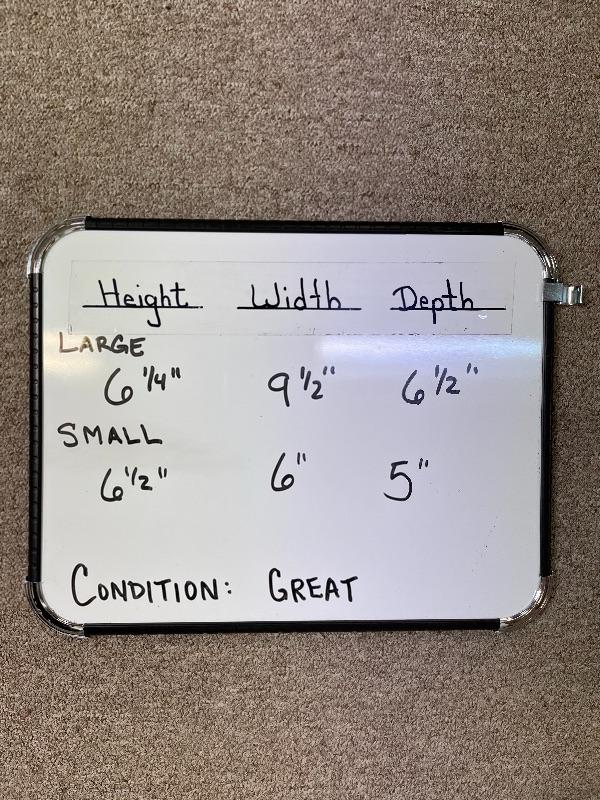 Height Width Depth
LARGE
6 1/4" 9 1/2" 6 1/2"
SMALL
6 1/2" 6" 5"
CONDITION: GREAT